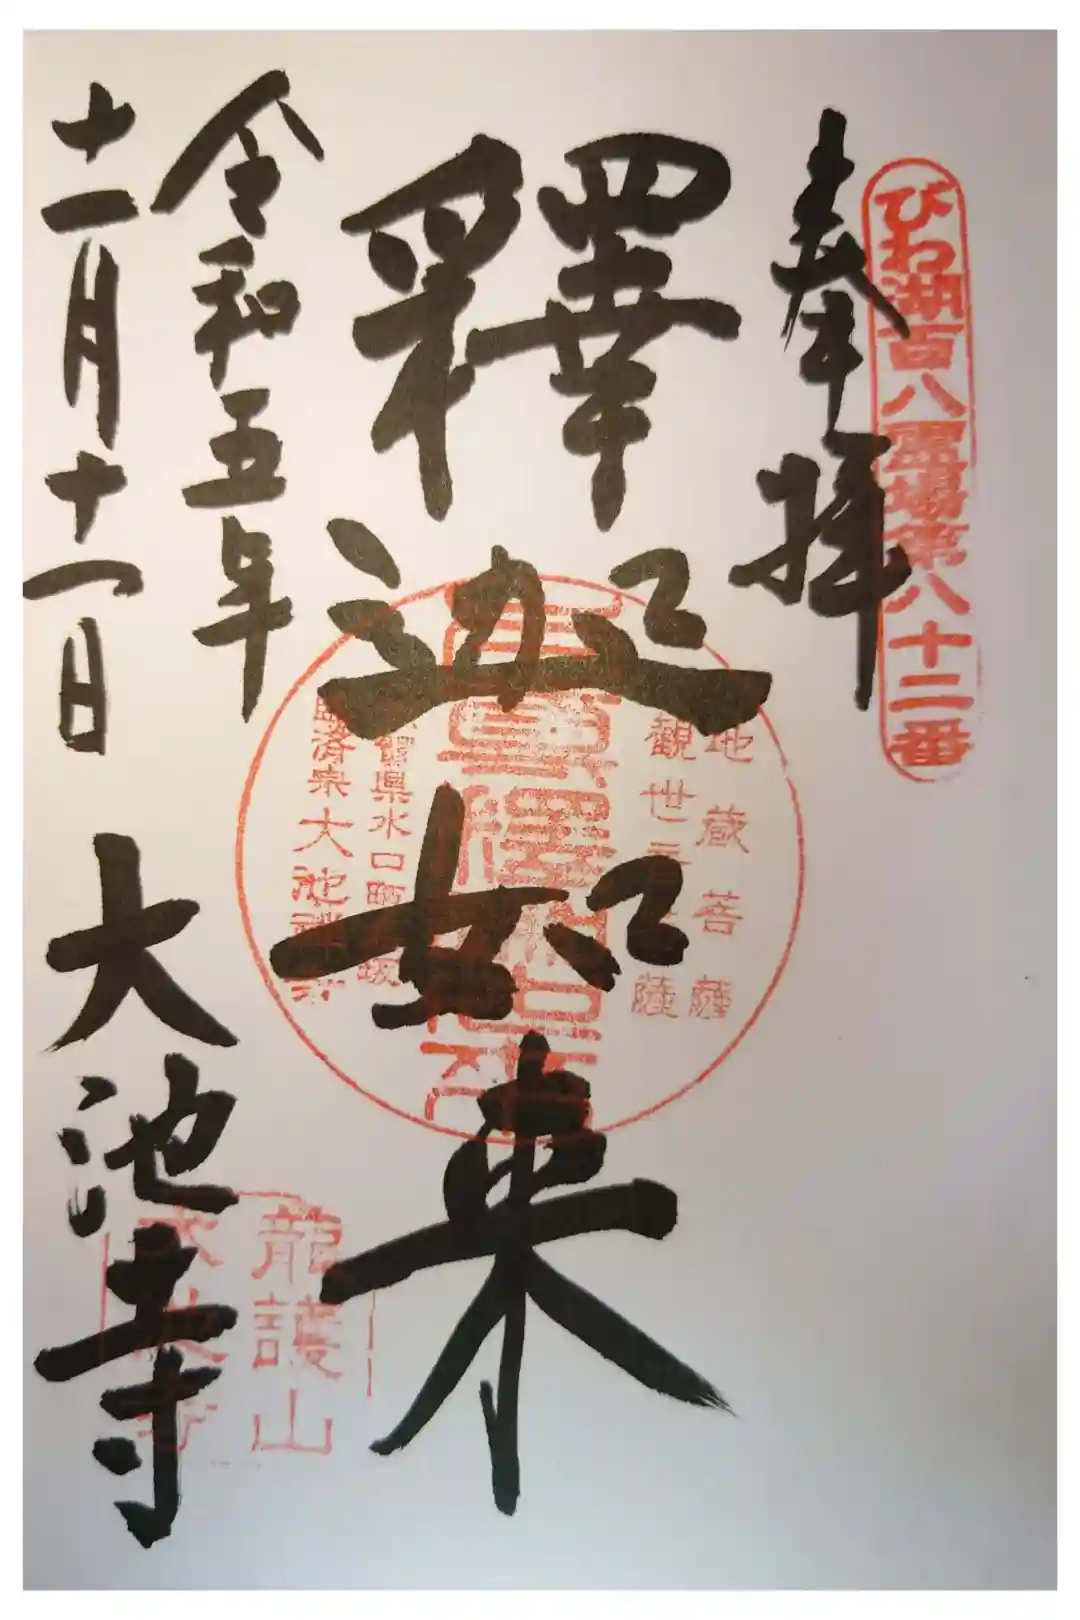 びわ湖百八霊場第八十二番
奉拝
釋迦如来
地蔵菩薩
観世音菩薩
県水口町
臨済宗大池禅寺
令和五年
十一月十一日
大池寺
龍護山